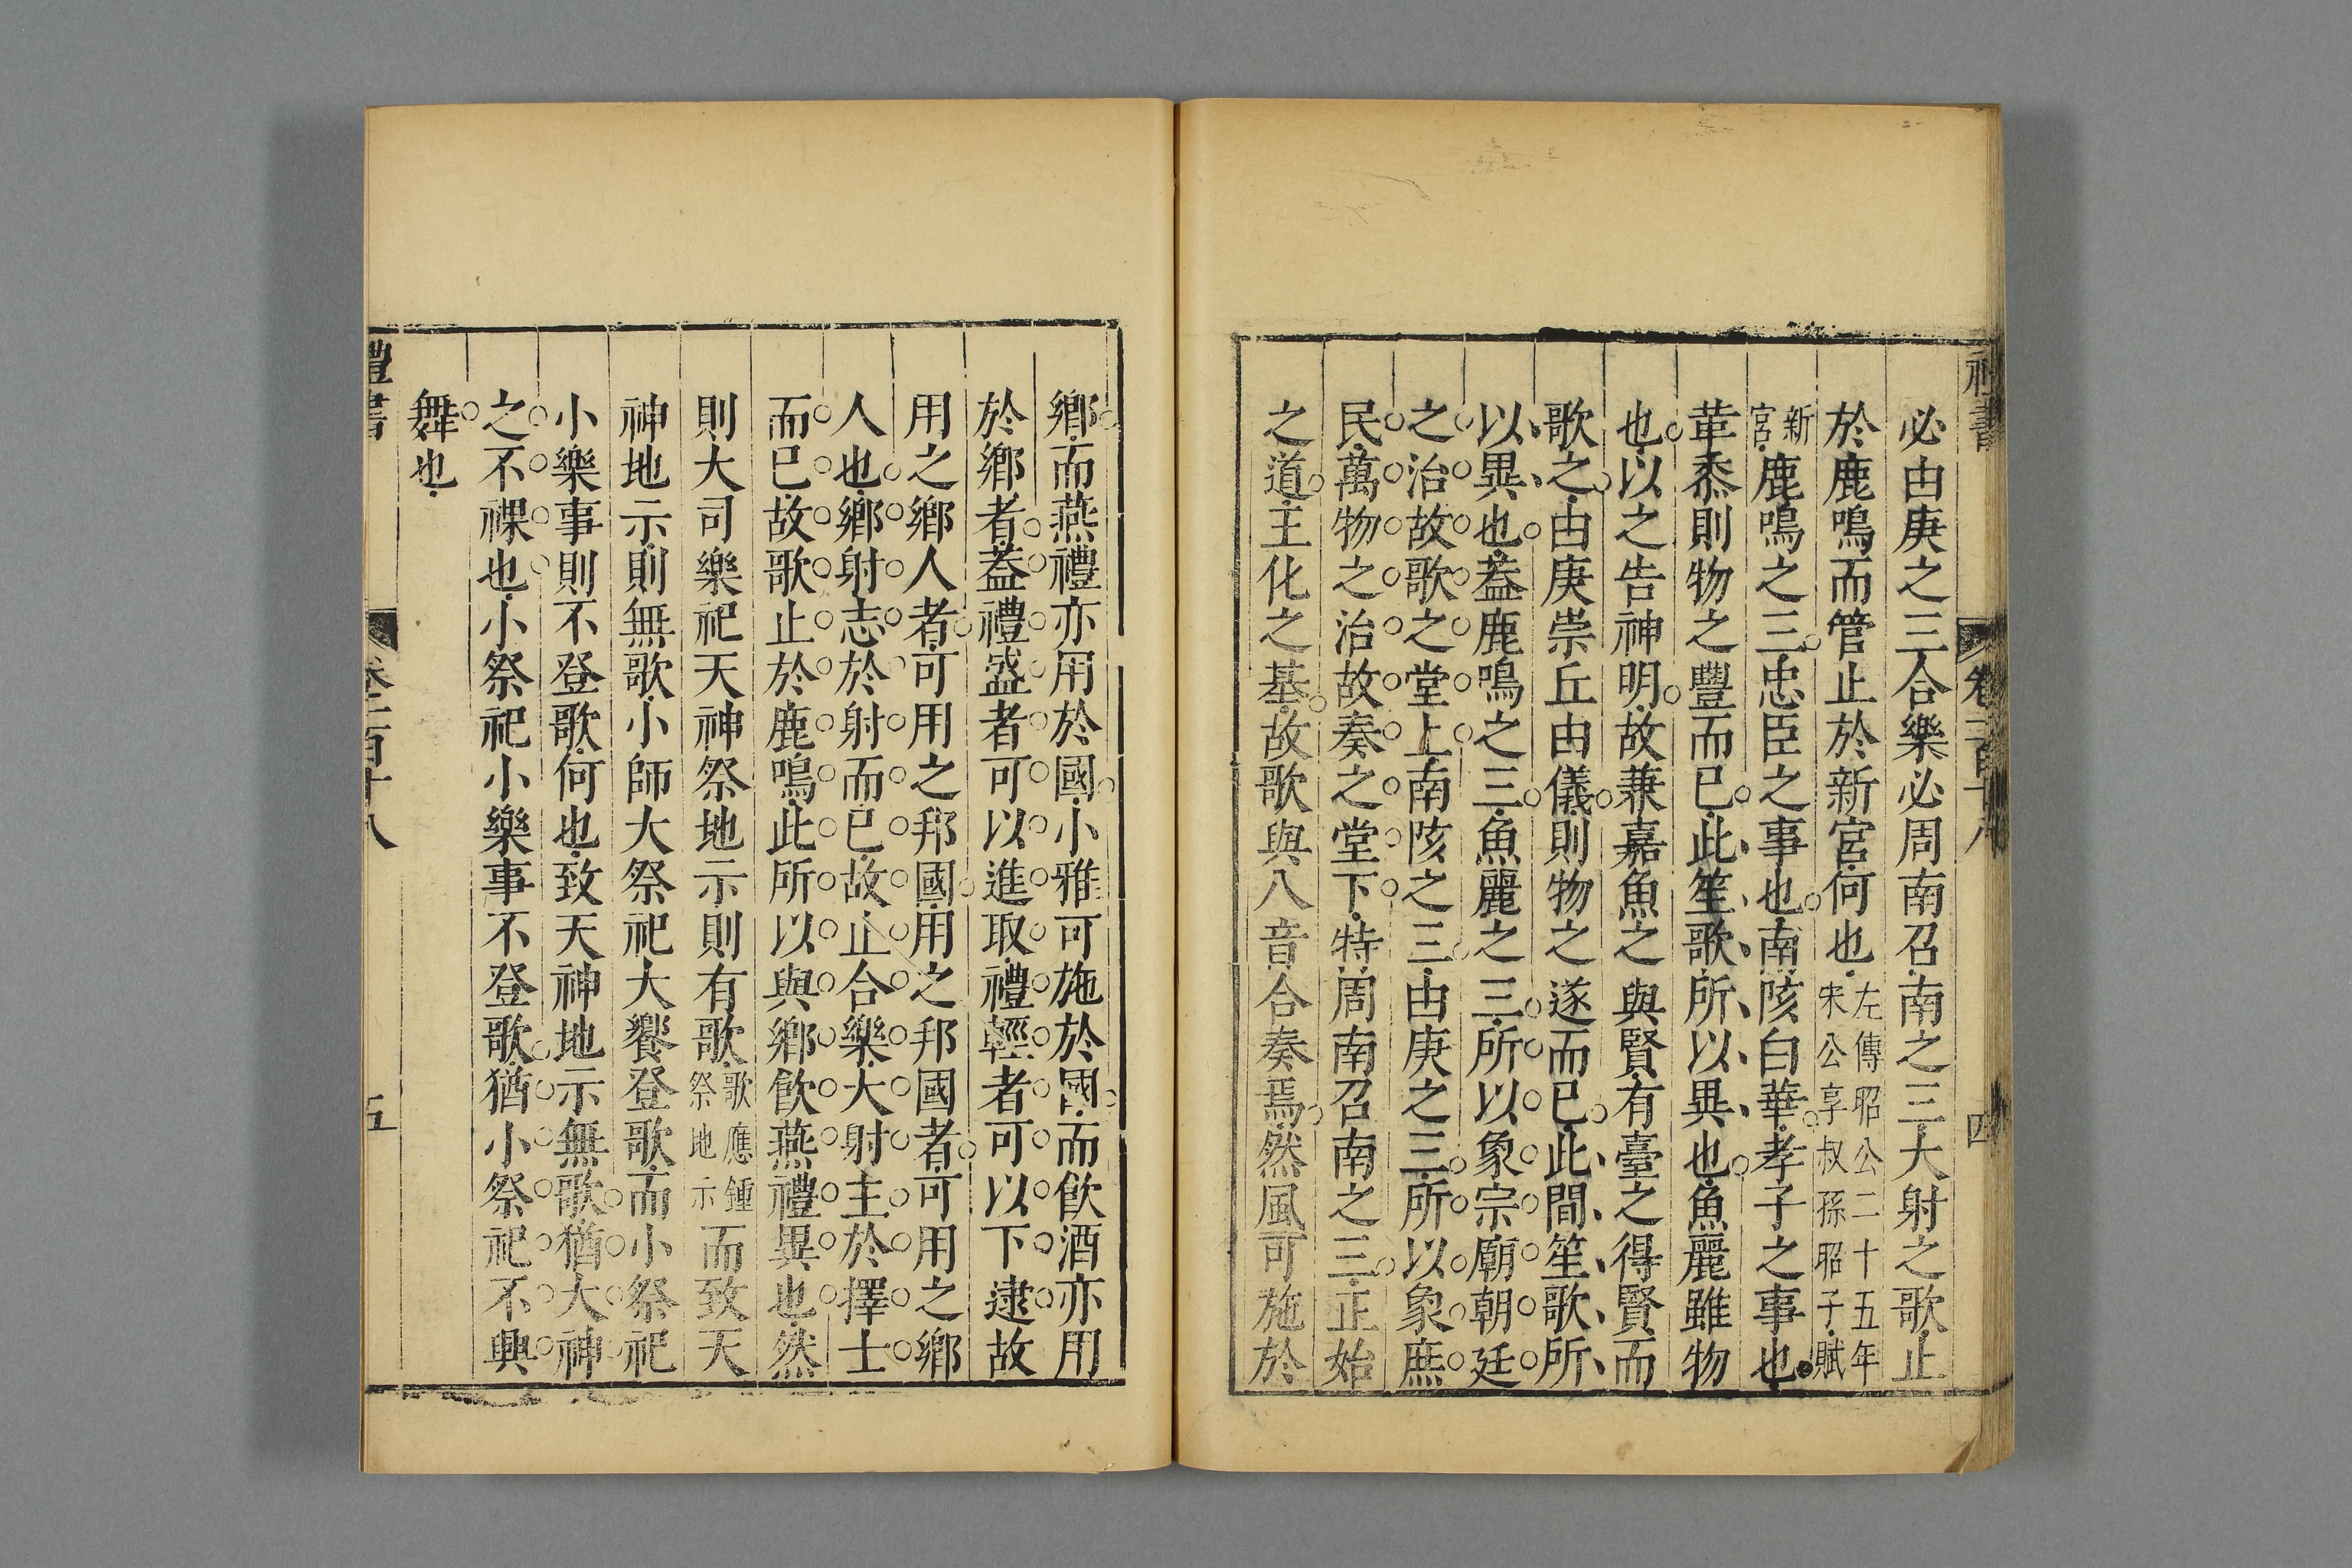 禮書 卷一百十八 四
必由庚之三合樂必周南召南之三大射之歌止
於鹿鳴而管止於新宮何也左傳昭公二十五年宋公享叔孫昭子賦
新宮鹿鳴之三忠臣之事也南陔白華孝子之事也
華黍則物之豐而已此笙歌所以異也魚麗雖物
也以之告神明故兼嘉魚之與賢有臺之得賢而
歌之由庚崇丘由儀則物之遂而已此間笙歌所
以異也蓋鹿鳴之三魚麗之三所以象宗廟朝廷
之治故歌之堂上南陔之三由庚之三所以象庶
民萬物之治故奏之堂下特周南召南之三正始
之道王化之基故歌與八音合奏焉然風可施於
鄉而燕禮亦用於國小雅可施於國而飲酒亦用
於鄉者蓋禮盛者可以進取禮輕者可以下逮故
用之鄉人者可用之邦國用之邦國者可用之鄉
人也鄉射志於射而已故止合樂大射主於擇士
而已故歌止於鹿鳴此所以與鄉飲燕禮異也然
則大司樂祀天神祭地示則有歌歌應鍾祭地示而致天
神地示則無歌小師大祭祀大饗登歌而小祭祀
小樂事則不登歌何也致天神地示無歌猶大神
之不祼也小祭祀小樂事不登歌猶小祭祀不興
舞也
禮書 卷一百十八 五